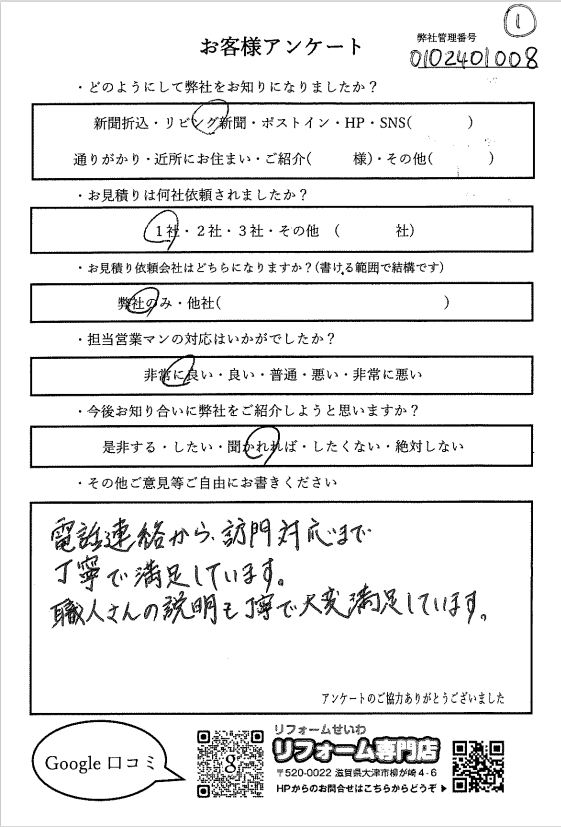 ①
お客様アンケート
弊社管理番号
0102401008
・どのようにして弊社をお知りになりましたか？
新聞折込・リビング新聞・ポストイン・HP・SNS(　　　　)
通りがかり・近所にお住まい・ご紹介(　　　様)・その他(　　　　)
・お見積りは何社依頼されましたか？
1社・2社・3社・その他　(　　　　社)
・お見積り依頼会社はどちらになりますか？(書ける範囲で結構です)
弊社のみ・他社(　　　　　　　　　　　　　)
・担当営業マンの対応はいかがでしたか？
非常に良い・良い・普通・悪い・非常に悪い
・今後お知り合いに弊社をご紹介しようと思いますか？
是非する・したい・聞かれれば・したくない・絶対しない
・その他ご意見等ご自由にお書きください
電話連絡から、訪問対応まで
丁寧で満足しています。
職人さんの説明も丁寧で大変満足しています。
アンケートのご協力ありがとうございました
Google 口コミ
8
リフォームせいわ
リフォーム専門店
〒520-0022 滋賀県大津市柳が崎4-6
HPからのお問合せはこちらからどうぞ▶